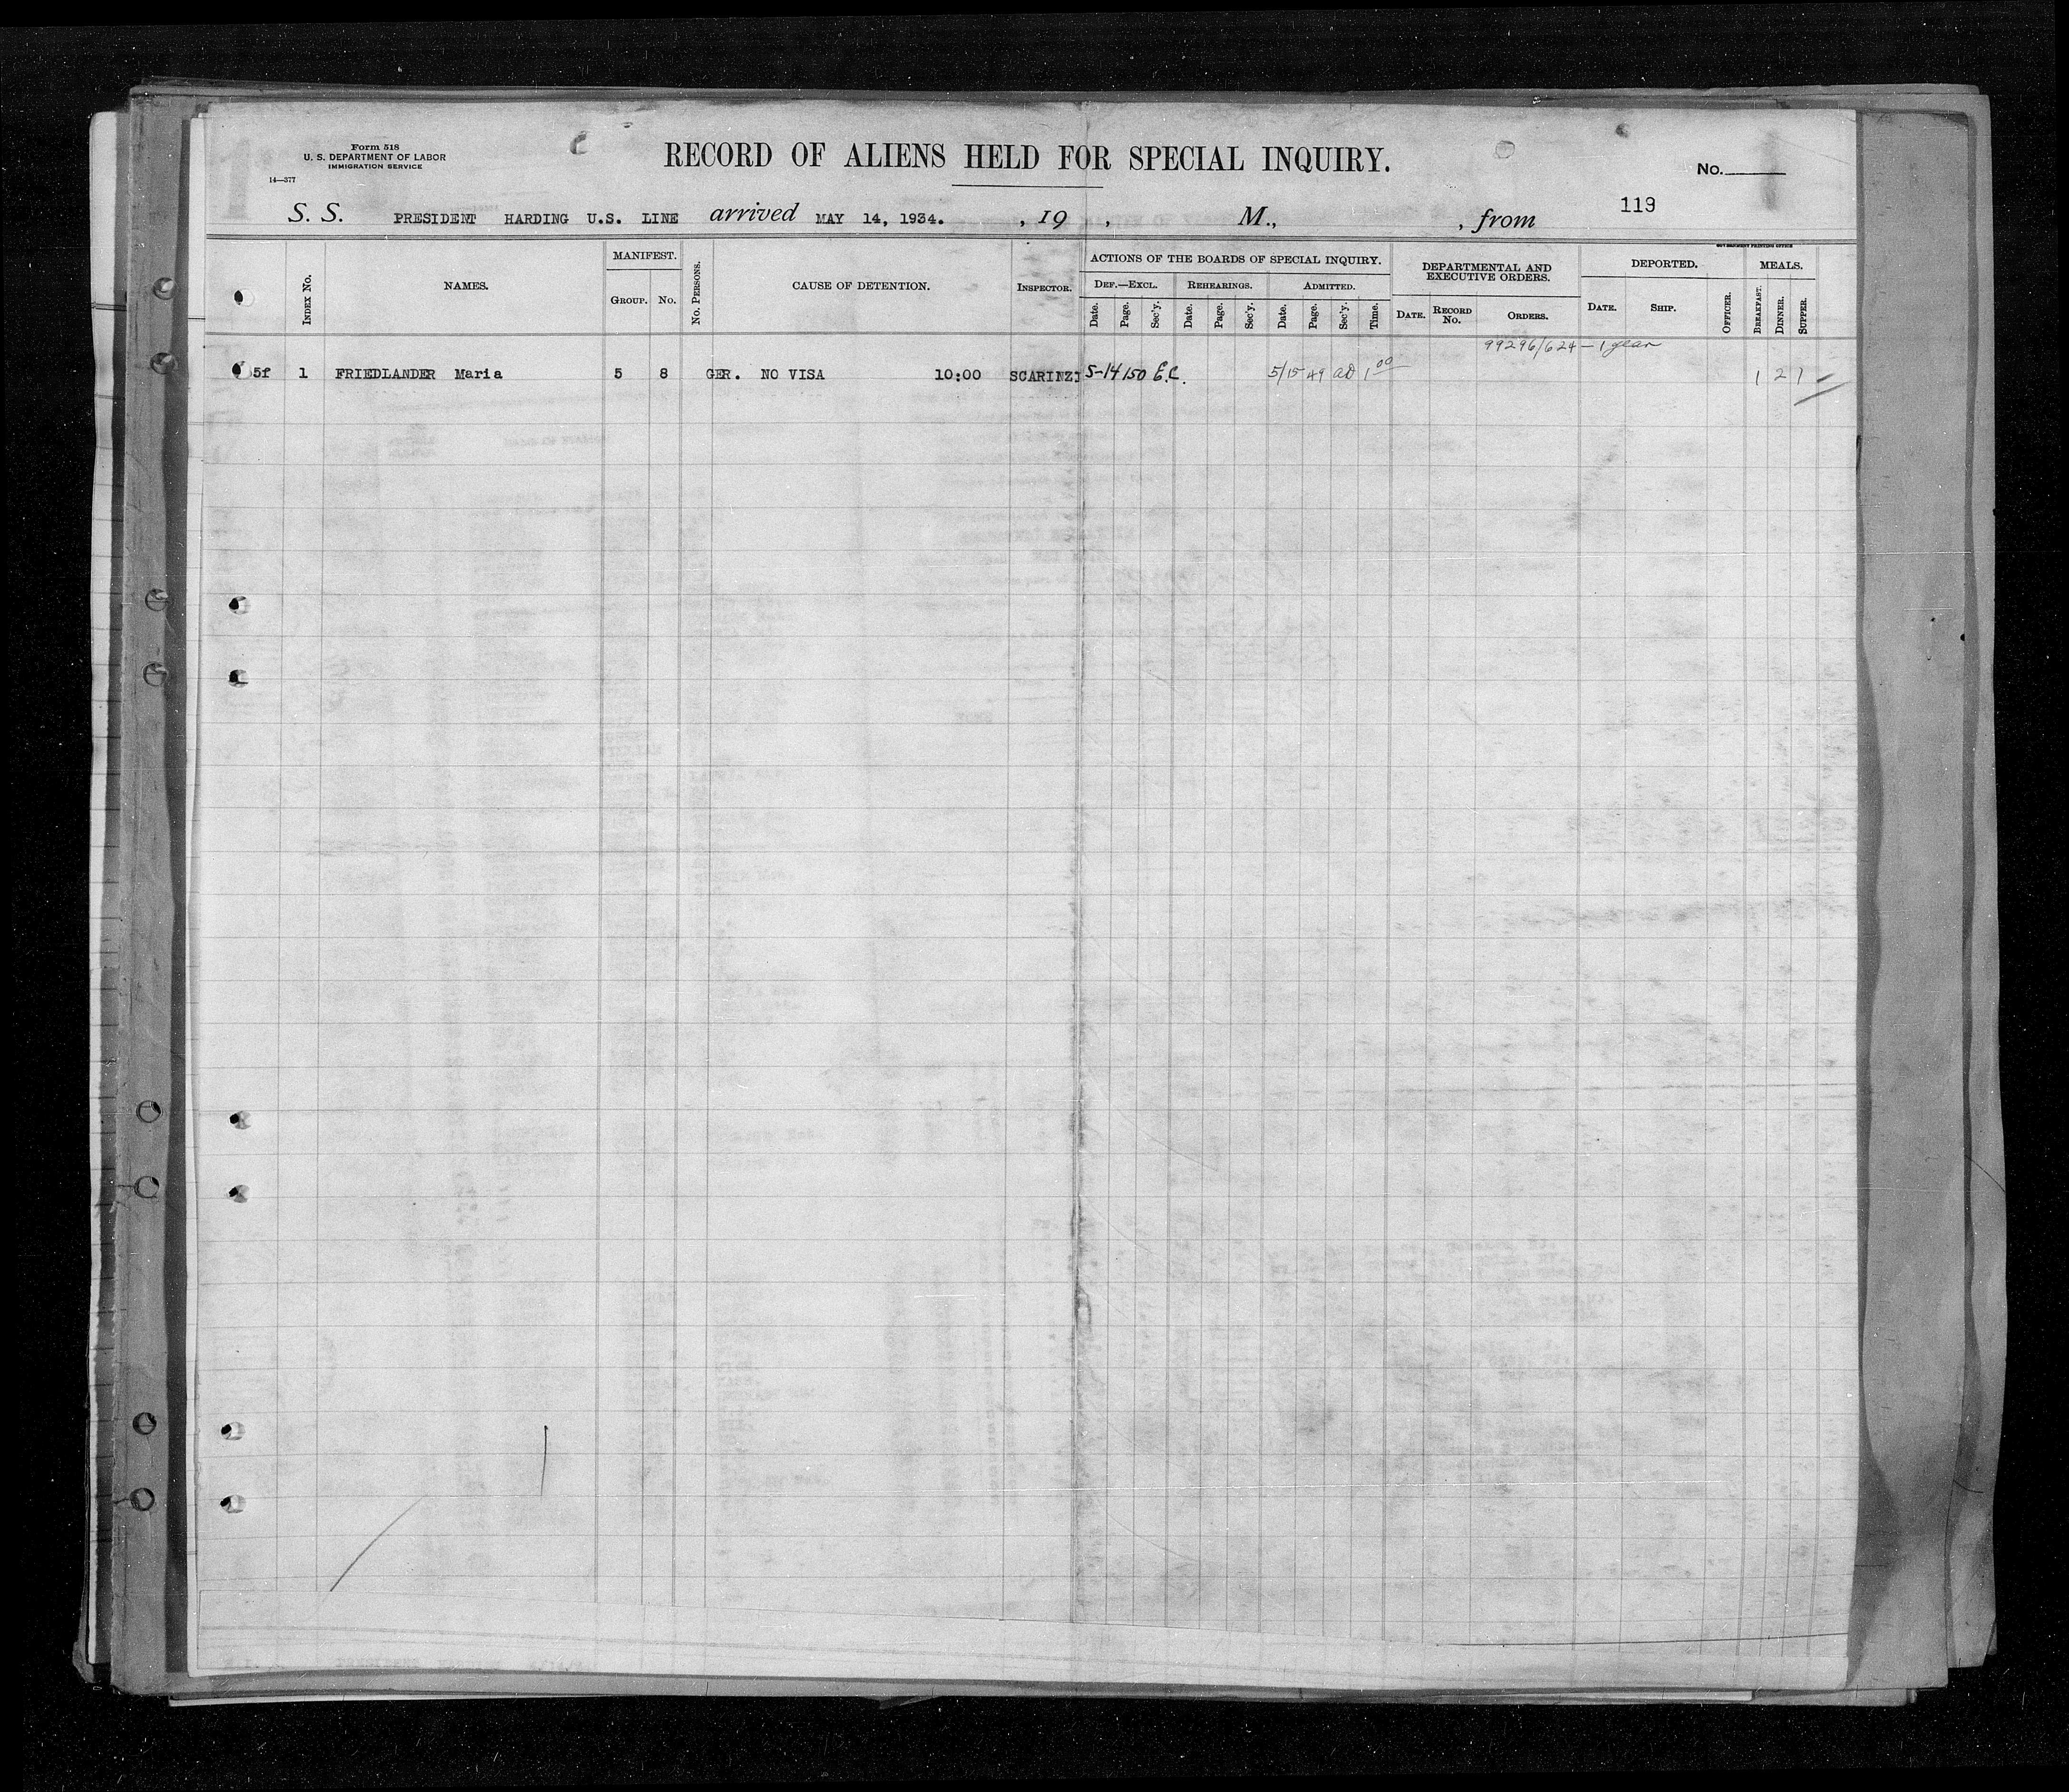 Form 518
U. S. DEPARTMENT OF LABOR
IMMIGRATION SERVICE
14—377
RECORD OF ALIENS HELD FOR SPECIAL INQUIRY.
No.
S. S. PRESIDENT HARDING U.S. LINE arrived MAY 14, 1934. , 19 , M., , from 119
GOVERNMENT PRINTING OFFICE
INDEX NO.
NAMES.
MANIFEST.
GROUP. NO.
NO. PERSONS.
CAUSE OF DETENTION.
INSPECTOR.
ACTIONS OF THE BOARDS OF SPECIAL INQUIRY.
DEF.—EXCL. REHEARINGS. ADMITTED.
Date. Page. Sec'y. Date. Page. Sec'y. Date. Page. Sec'y. Time.
DEPARTMENTAL AND
EXECUTIVE ORDERS.
DATE. RECORD NO. ORDERS.
DEPORTED.
DATE. SHIP. OFFICER.
MEALS.
BREAKFAST. DINNER. SUPPER.
99296/624 — 1 year
5f 1 FRIEDLANDER Maria 5 8 GER. NO VISA 10:00 SCARINZI 5-14 150 E.C. 5/15 49 1 00 1 2 1